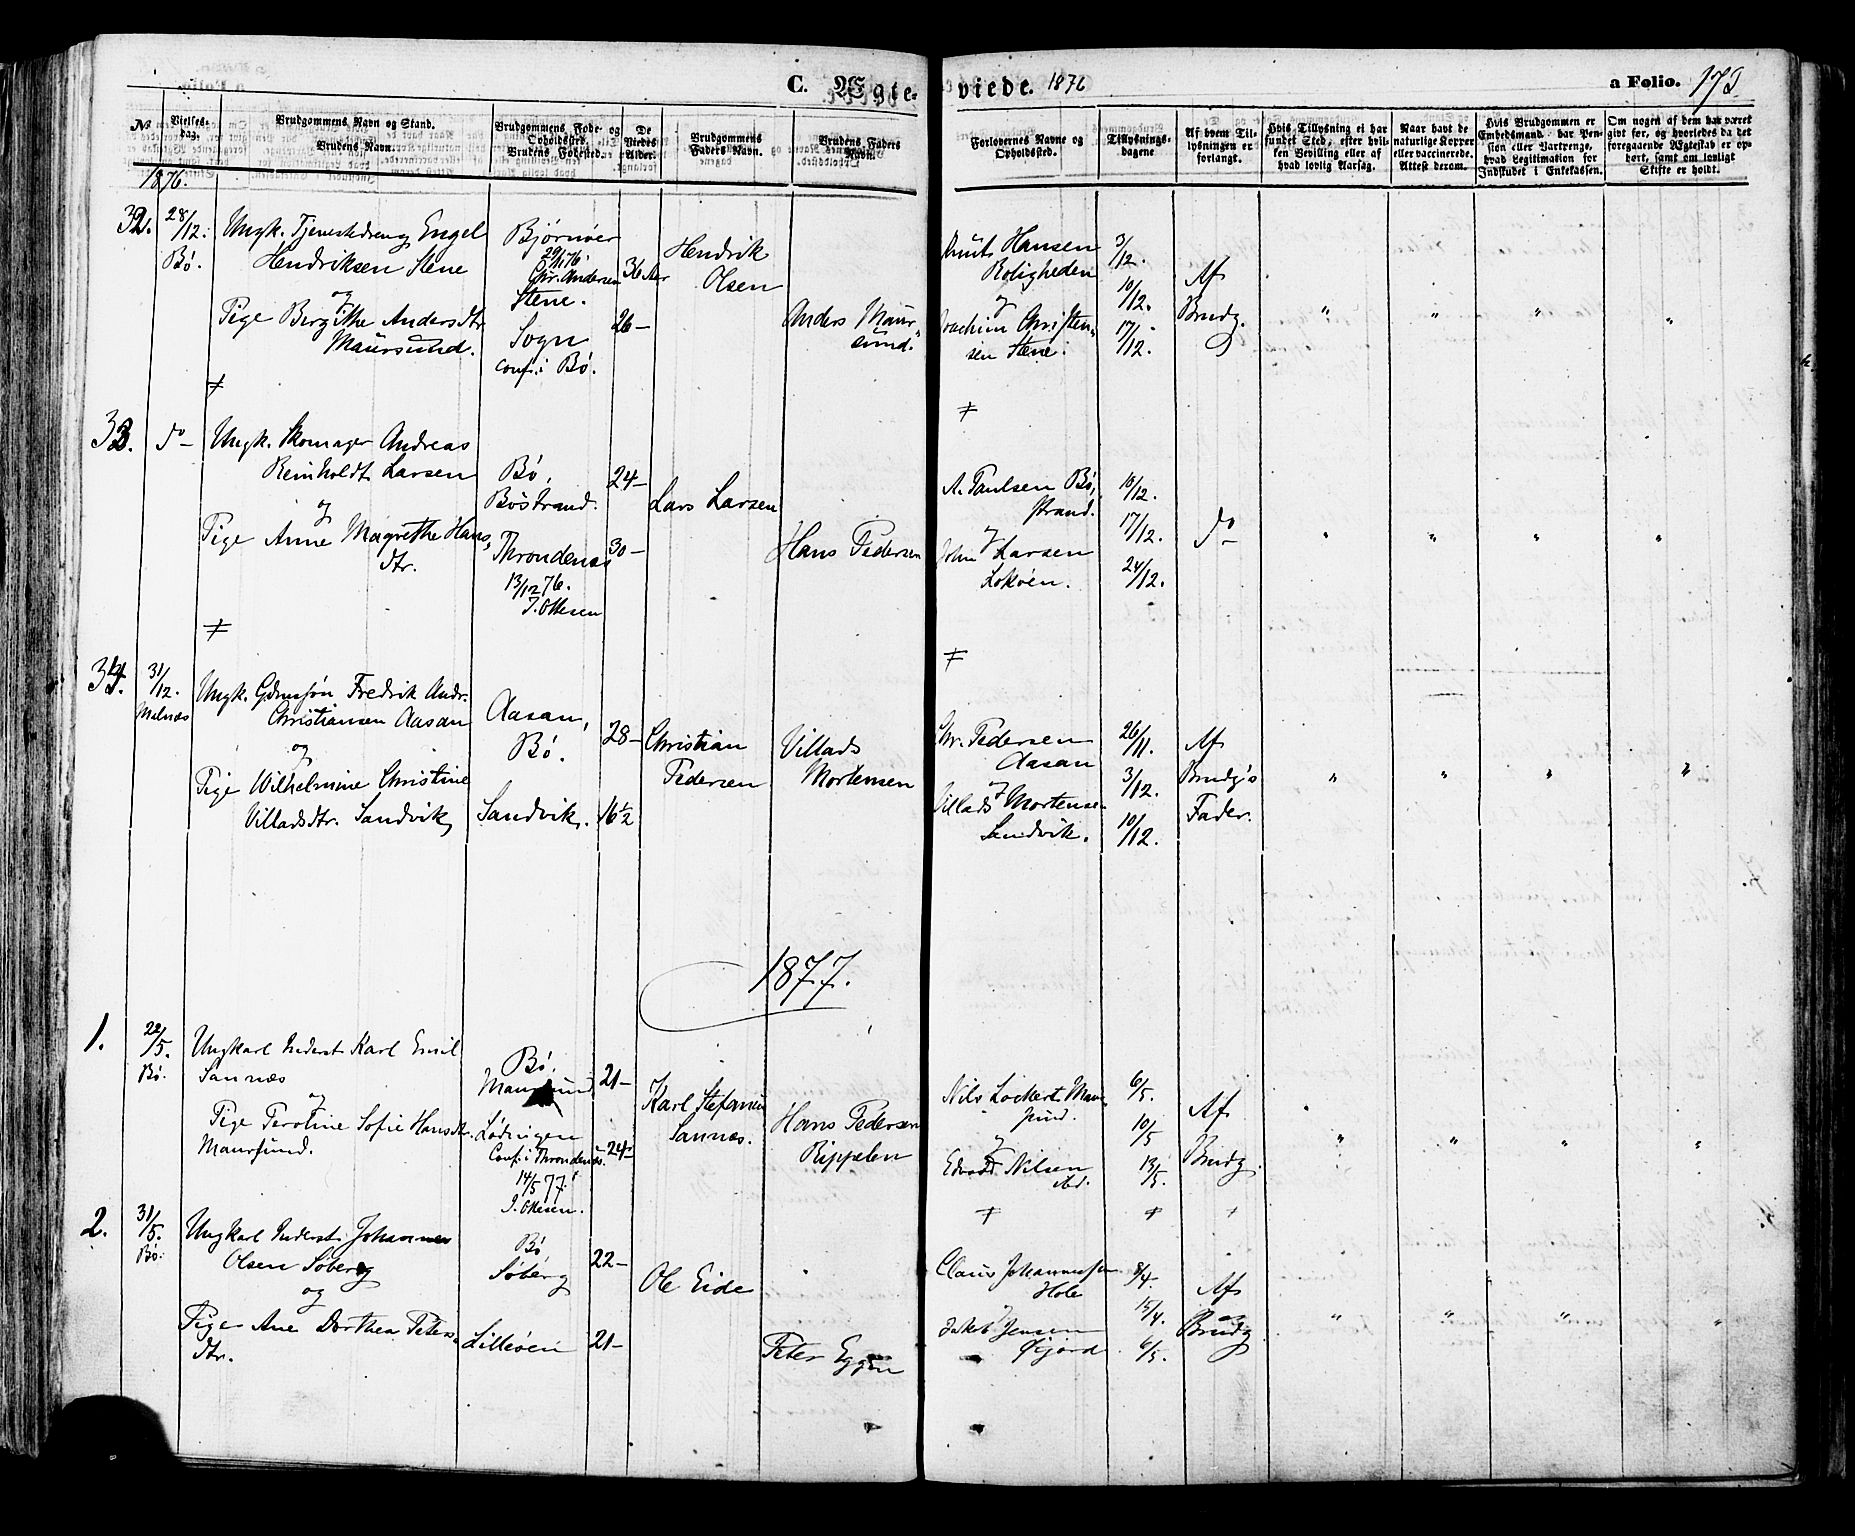 C. Ægte-
viede. 1876
a Folio. 173.
№
Vielses-
dag.
Brudgommens Navn og Stand.
Brudens Navn.
Brudgommens Føde- og
Opholdssted.
Brudens Fødested.
De
Viedes
Alder.
Brudgommens
Faders Navn.
Brudens Faders
Navn.
Forlovernes Navne og
Opholdssted.
Tillysnings-
dagene
Af hvem Til-
lysningen er
forlangt.
Hvis Tillysning ei har
fundet Sted, efter hvil-
ken Bevilling eller af
hvad lovlig Aarsag.
Naar havt de
naturlige Kopper
eller vaccinerede.
Attest derom.
Hvis Brudgommen er
Embedsmand, har Pen-
sion eller Vartpenge,
hvad Legitimation for
Indskudet i Enkekassen.
Om nogen af dem har været
givt før, og hvorledes da det
foregaaende Ægteskab er op-
hørt, samt om lovligt
Skifte er holdt.
1876.
32.
28/12.
Bø.
Ungk. Tjenestedreng Engel
Hendriksen Stene
og
Pige Bergithe Andersdtr
Maursund.
Bjørnøer
Chr. Andersen
Stene.
Sogn
conf. i Bø.
36 Aar
26 –
Hendrik
Olsen
Anders Maur-
sund.
Knut Hansen
Roligheden
og
Joachim Christen-
sen Stene.
3/12.
10/12.
17/12.
Af
Brudg.
" " " "
≠
≠
33.
do –
Ungk. Skomager Andreas
Reinholdt Larsen
og
Pige Anne Magrethe Hans-
dtr.
Bø,
Bøstrand.
Throndenæs
13/12 76.
J. Ottesen
24 –
30 –
Lars Larsen
Hans Pedersen
A. Paulsen Bø-
strand.
og
John Larsen
Lokøen.
10/12.
17/12.
24/12.
do –
" " " "
≠
≠
34.
31/12.
Malnæs
Ungk. Gdmssøn Fredrik Andr.
Christiansen Aasan
og
Pige Wilhelmine Christine
Villadsdtr. Sandvik,
Aasan,
Bø.
Sandvik.
28 –
16 1/2
Christian
Pedersen
Villads
Mortensen
Chr. Pedersen
Aasan
og
Villads Mortensen
Sandvik.
26/11.
3/12.
10/12.
Af
Brudg's
Fader.
" " " "
1877.
1.
22/5.
Bø.
Ungkarl Inderst Karl Emil
Sannæs
og
Pige Peroline Sofie Hansdtr.
Maursund.
Bø.
Maursund
Lødingen
Conf. i Throndenæs.
14/5 77.
J. Ottesen.
21 –
24 –
Karl Stefanus
Sannæs.
Hans Pedersen
Rippelen
Nils Lockert Maur-
sund.
og
Edvard Nilsen
ibd.
6/5.
10/5
13/5.
Af
Brudg.
" " " "
≠ ≠ +
2.
31/5.
Bø.
Ungkarl Inderst Johannes
Olsen Søberg
og
Pige Ane Dorthea Peters-
dtr.
Bø,
Søberg
Lilleøen
22 –
21 –
Ole Eide
Peter Eggen
Claus Johannessen
Hole
og
Jakob Jensen
8/4.
15/4.
6/5.
Af
Brudg
" " " "